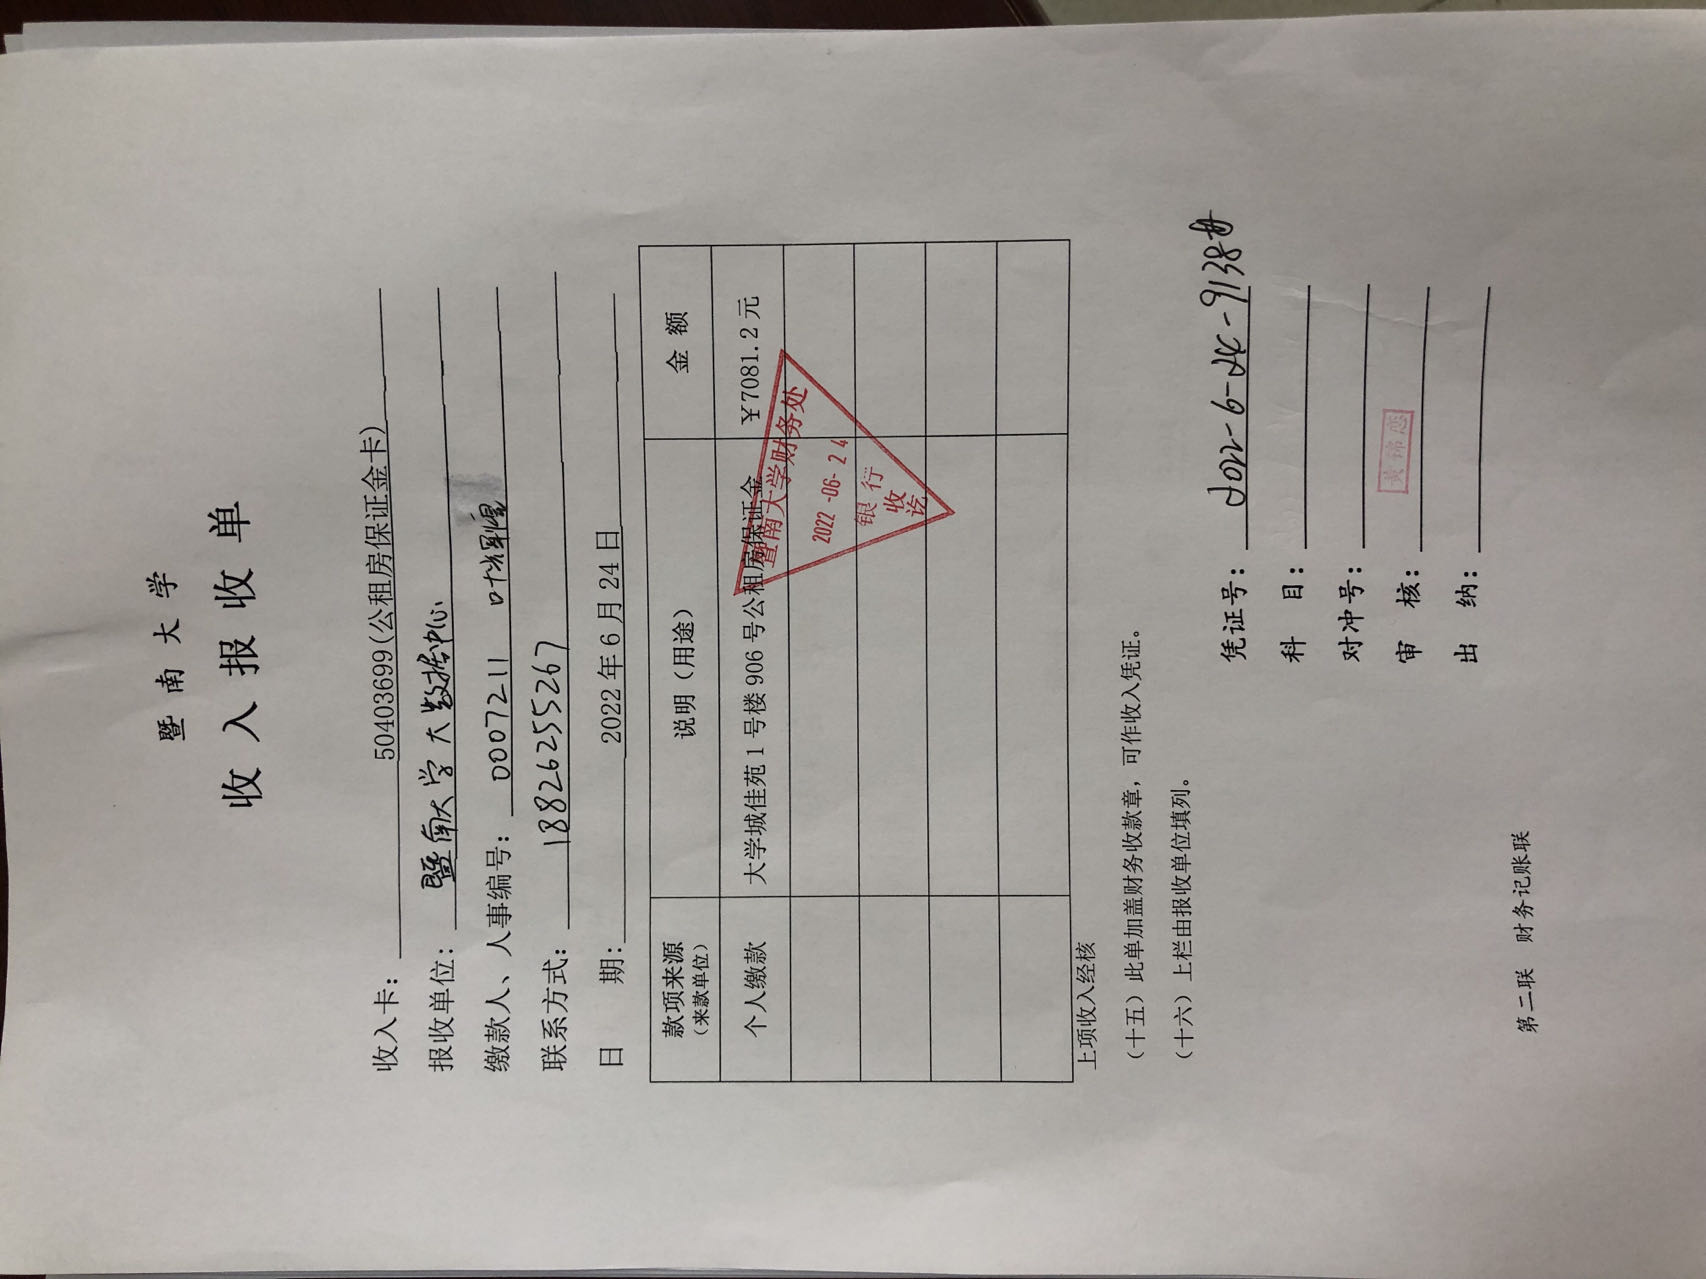 暨南大学
收入报收单
收入卡: 50403699(公租房保证金卡)
报收单位: 暨南大学大数据中心
缴款人、人事编号: 0007211 叶辉煌
联系方式: 18826255267
日 期: 2022年6月24日
款项来源 (来款单位) 说明(用途) 金 额
个人缴款 大学城佳苑1号楼906号公租房保证金 ￥7081.2元
暨南大学财务处
2022-06-24
银行
收
讫
上项收入经核
(十五)此单加盖财务收款章,可作收入凭证。
(十六)上栏由报收单位填列。
凭证号: 2022-6-24-9138
科 目:
对冲号:
审 核: 黄锦恋
出 纳:
第二联 财务记账联